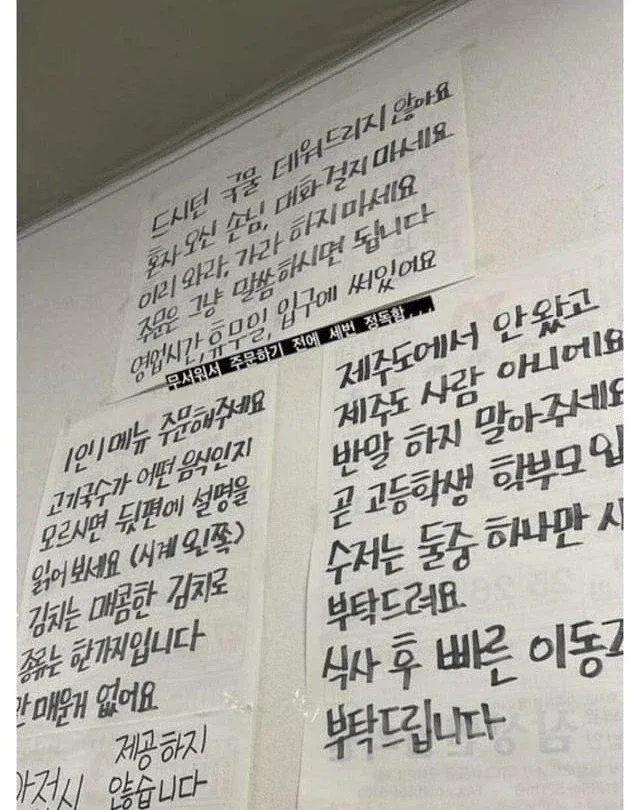 드시던 국물 데워드리지 않아요
혼자 오신 손님, 대화 걸지 마세요
이리 와라, 가라 하지 마세요
주문은 그냥 말씀하시면 됩니다
영업시간, 휴무일, 입구에 써있어요
무서워서 주문하기 전에 세번 정독함...
1인 1메뉴 주문해주세요
고기국수가 어떤 음식인지
모르시면 뒷편에 설명을
읽어 보세요 (시계 왼쪽)
김치는 매콤한 김치로
종류는 한가지입니다
안 매운거 없어요
제공하지
않습니다
제주도에서 안 왔고
제주도 사람 아니에요
반말 하지 말아주세요
곧 고등학생 학부모
수저는 둘중 하나만
부탁드려요
식사 후 빠른 이동
부탁드립니다